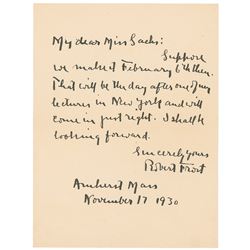 My dear Miss Sachs:
Suppose
we make it February 6th then.
That will be the day after one of my
lectures in New York and will
come in just right. I shall be
looking forward.
Sincerely yours
Robert Frost
Amherst Mass
November 17 1930